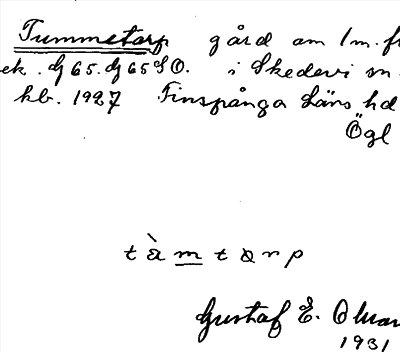 Tummetorp gård om 1 m. fr
ek. G 65. G 65 SO. i Skedevi sn
kb. 1927 Finspånga läns hd
Ögl
tàmtɑrp
Gustaf E.
1931